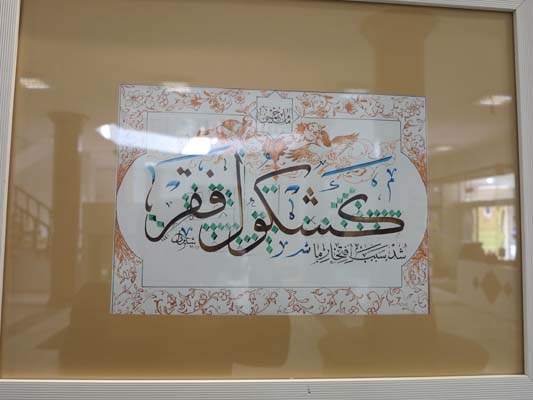 کشکول فقر
شد سبب افتخار ما